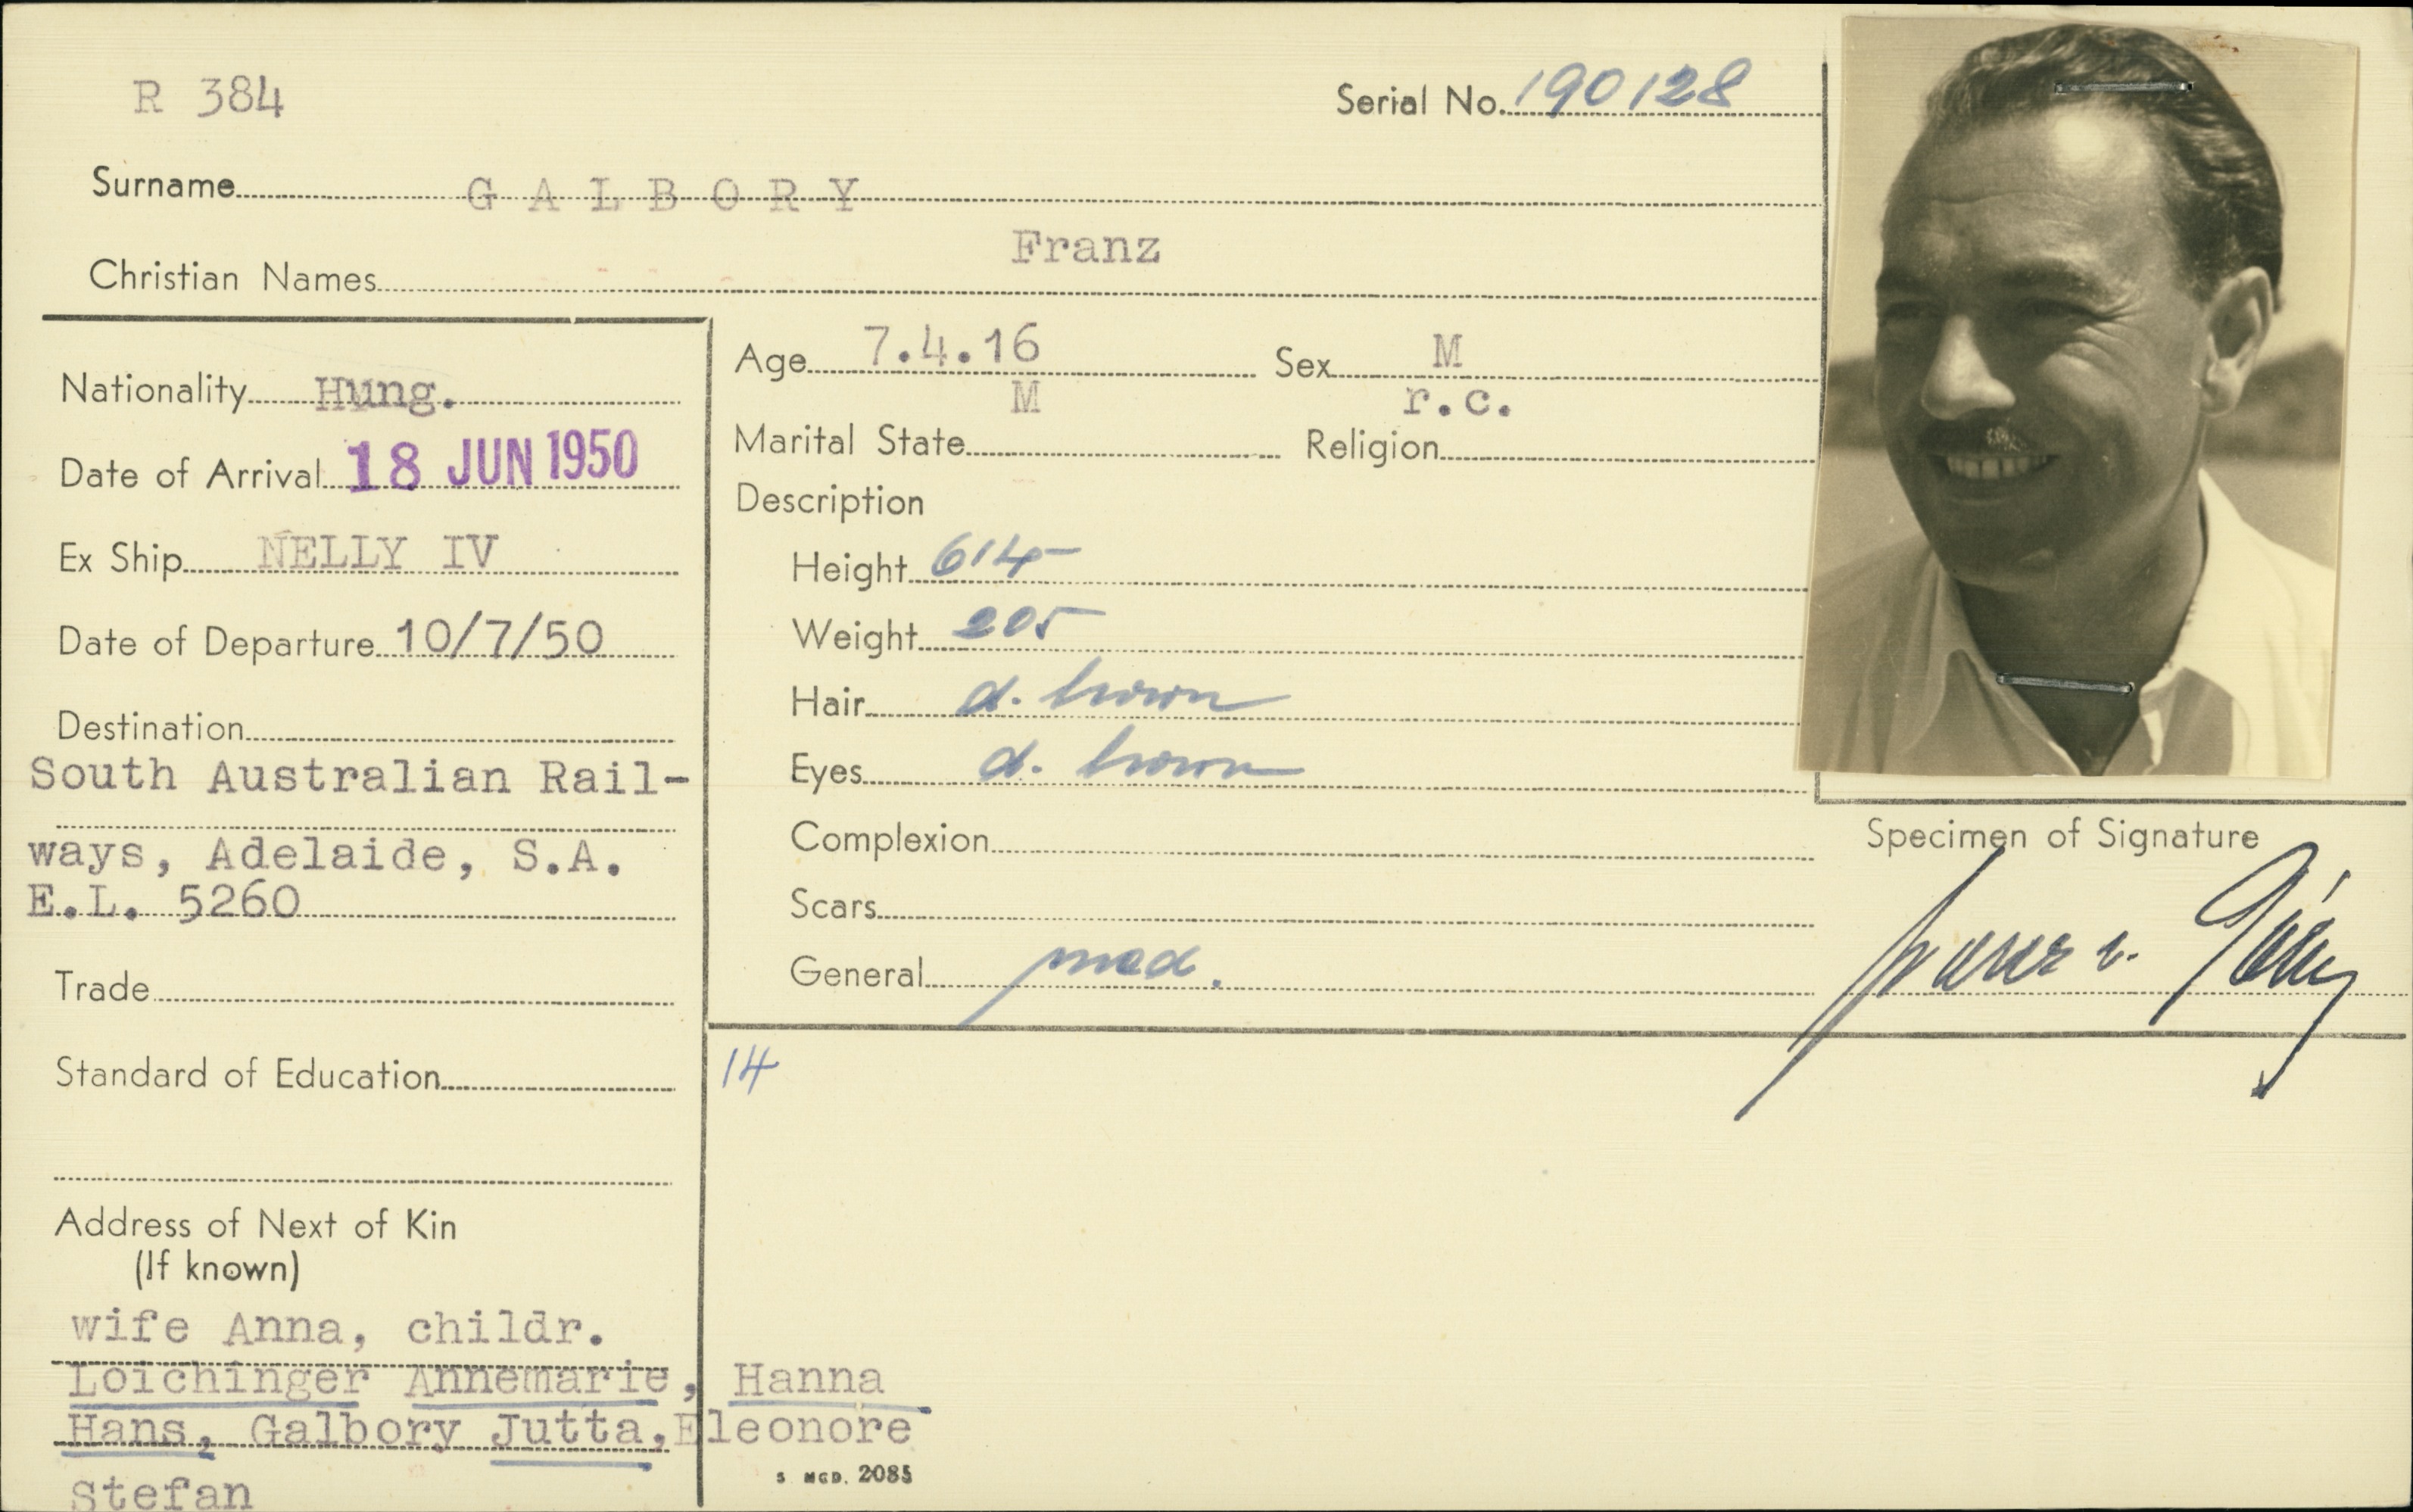 R 384
Serial No. 190128
Surname G A L B O R Y
Franz
Christian Names
Nationality Hung.
Date of Arrival 18 JUN 1950
Ex Ship NELLY IV
Date of Departure 10/7/50
Destination
South Australian Rail-
ways, Adelaide, S.A.
E.L. 5260
Trade
Standard of Education
Address of Next of Kin
(If known)
wife Anna, childr.
Loichinger Annemarie, Hanna
Hans, Galbory Jutta, Eleonore
Stefan
Age 7.4.16 Sex M
M r.c.
Marital State Religion
Description
Height
Weight 205
Hair d. brown
Eyes d. brown
Complexion
Scars
General med.
Specimen of Signature
14
S MGD. 2085